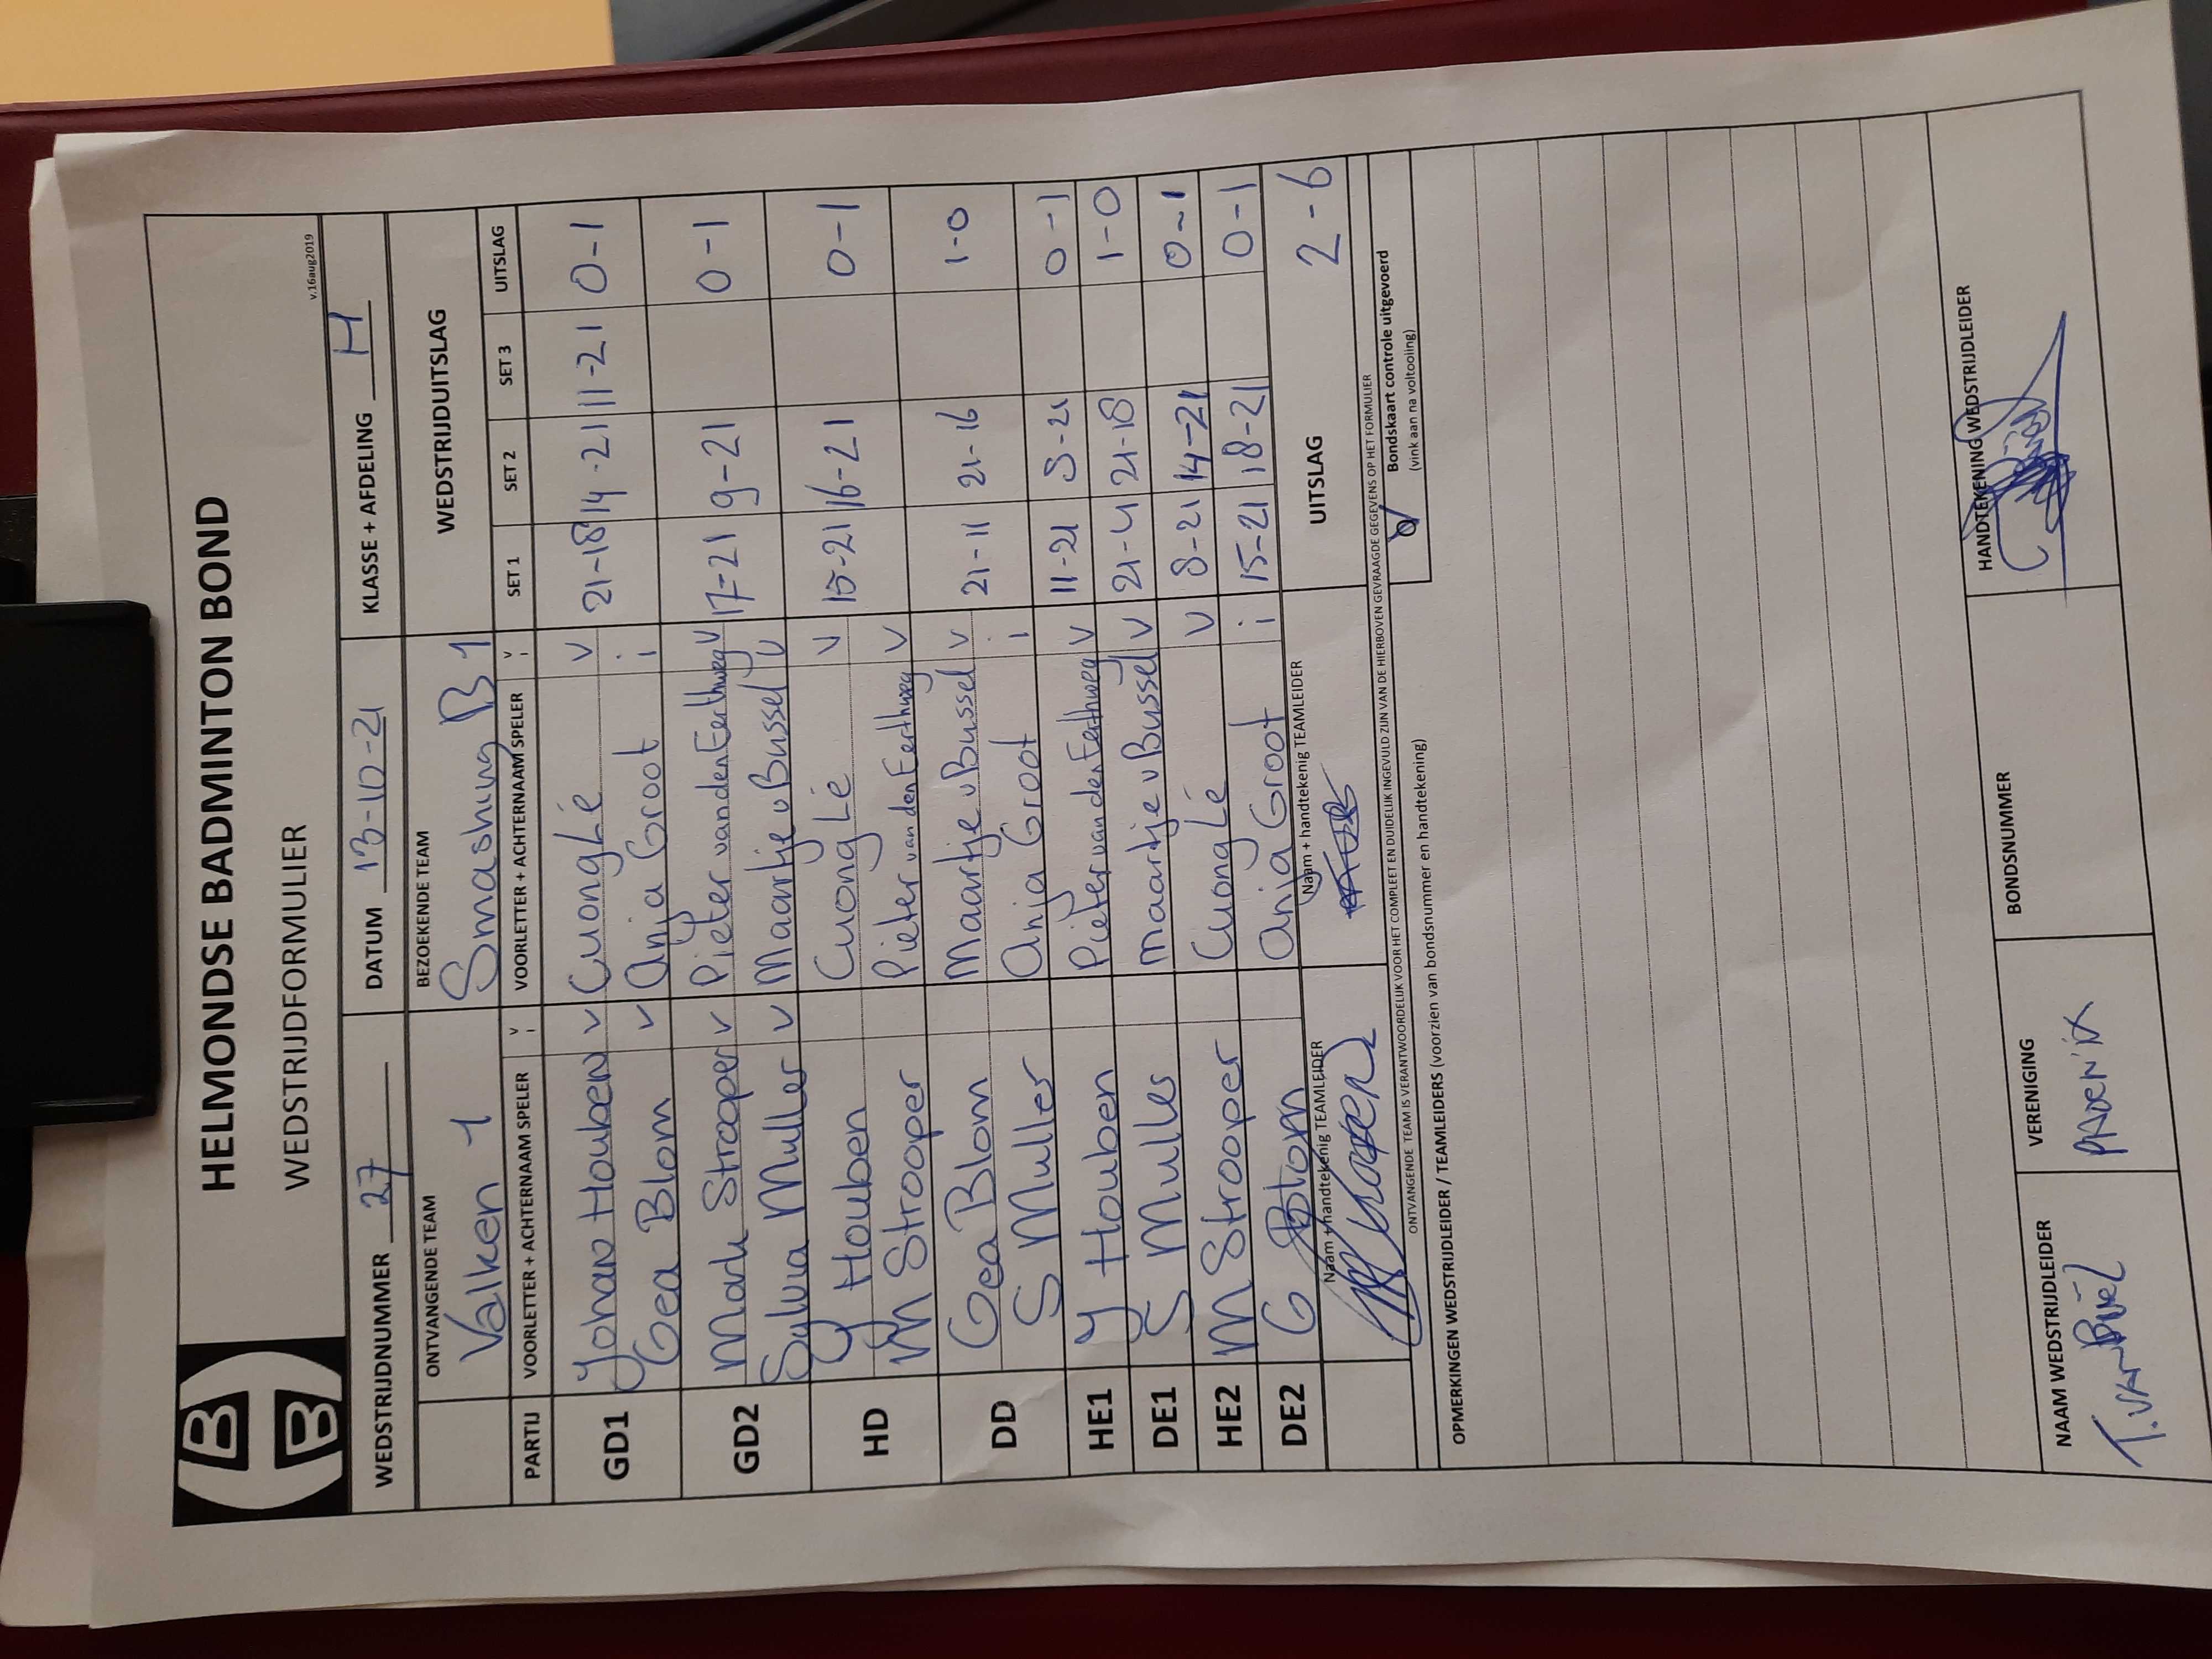 HELMONDSE BADMINTON BOND
WEDSTRIJDFORMULIER
v.16aug2019
WEDSTRIJDNUMMER 27 DATUM 13-10-21 KLASSE + AFDELING H
ONTVANGENDE TEAM BEZOEKENDE TEAM WEDSTRIJDUITSLAG
Valken 1 Smashing B1
PARTIJ VOORLETTER + ACHTERNAAM SPELER v i VOORLETTER + ACHTERNAAM SPELER v i SET 1 SET 2 SET 3 UITSLAG
GD1 Johan Houben v Cuong Lé v 21-18 14-21 11-21 0-1
Gea Blom v Anja Groot i
GD2 Mark Strooper v Pieter van den Eerthweg v 17-21 9-21 0-1
Sylvia Muller v Maartje v Bussel v
HD J Houben Cuong Lé v 15-21 16-21 0-1
M Strooper Pieter van den Eerthweg v
DD Gea Blom Maartje v Bussel v 21-11 21-16 1-0
S Muller Anja Groot i
HE1 J Houben Pieter van den Eerthweg v 11-21 9-21 0-1
DE1 S Muller Maartje v Bussel v 21-4 21-18 1-0
HE2 M Strooper Cuong Lé v 8-21 14-21 0-1
DE2 G Blom Anja Groot i 15-21 18-21 0-1
Naam + handtekenig TEAMLEIDER Naam + handtekenig TEAMLEIDER UITSLAG 2-6
ONTVANGENDE TEAM IS VERANTWOORDELIJK VOOR HET COMPLEET EN DUIDELIJK INGEVULD ZIJN VAN DE HIERBOVEN GEVRAAGDE GEGEVENS OP HET FORMULIER
Bondskaart controle uitgevoerd
(vink aan na voltooiing)
OPMERKINGEN WEDSTRIJDLEIDER / TEAMLEIDERS (voorzien van bondsnummer en handtekening)
NAAM WEDSTRIJDLEIDER VERENIGING BONDSNUMMER HANDTEKENING WEDSTRIJDLEIDER
T. van Briel